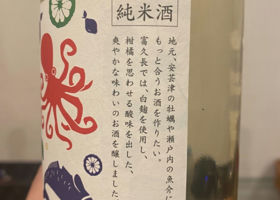 純米酒
地元、安芸津の牡蠣や瀬戸内の魚介に
もっと合うお酒を作りたい。
富久長では、白麹を使用し、
柑橘を思わせる酸味を出した、
爽やかな味わいのお酒を醸しました